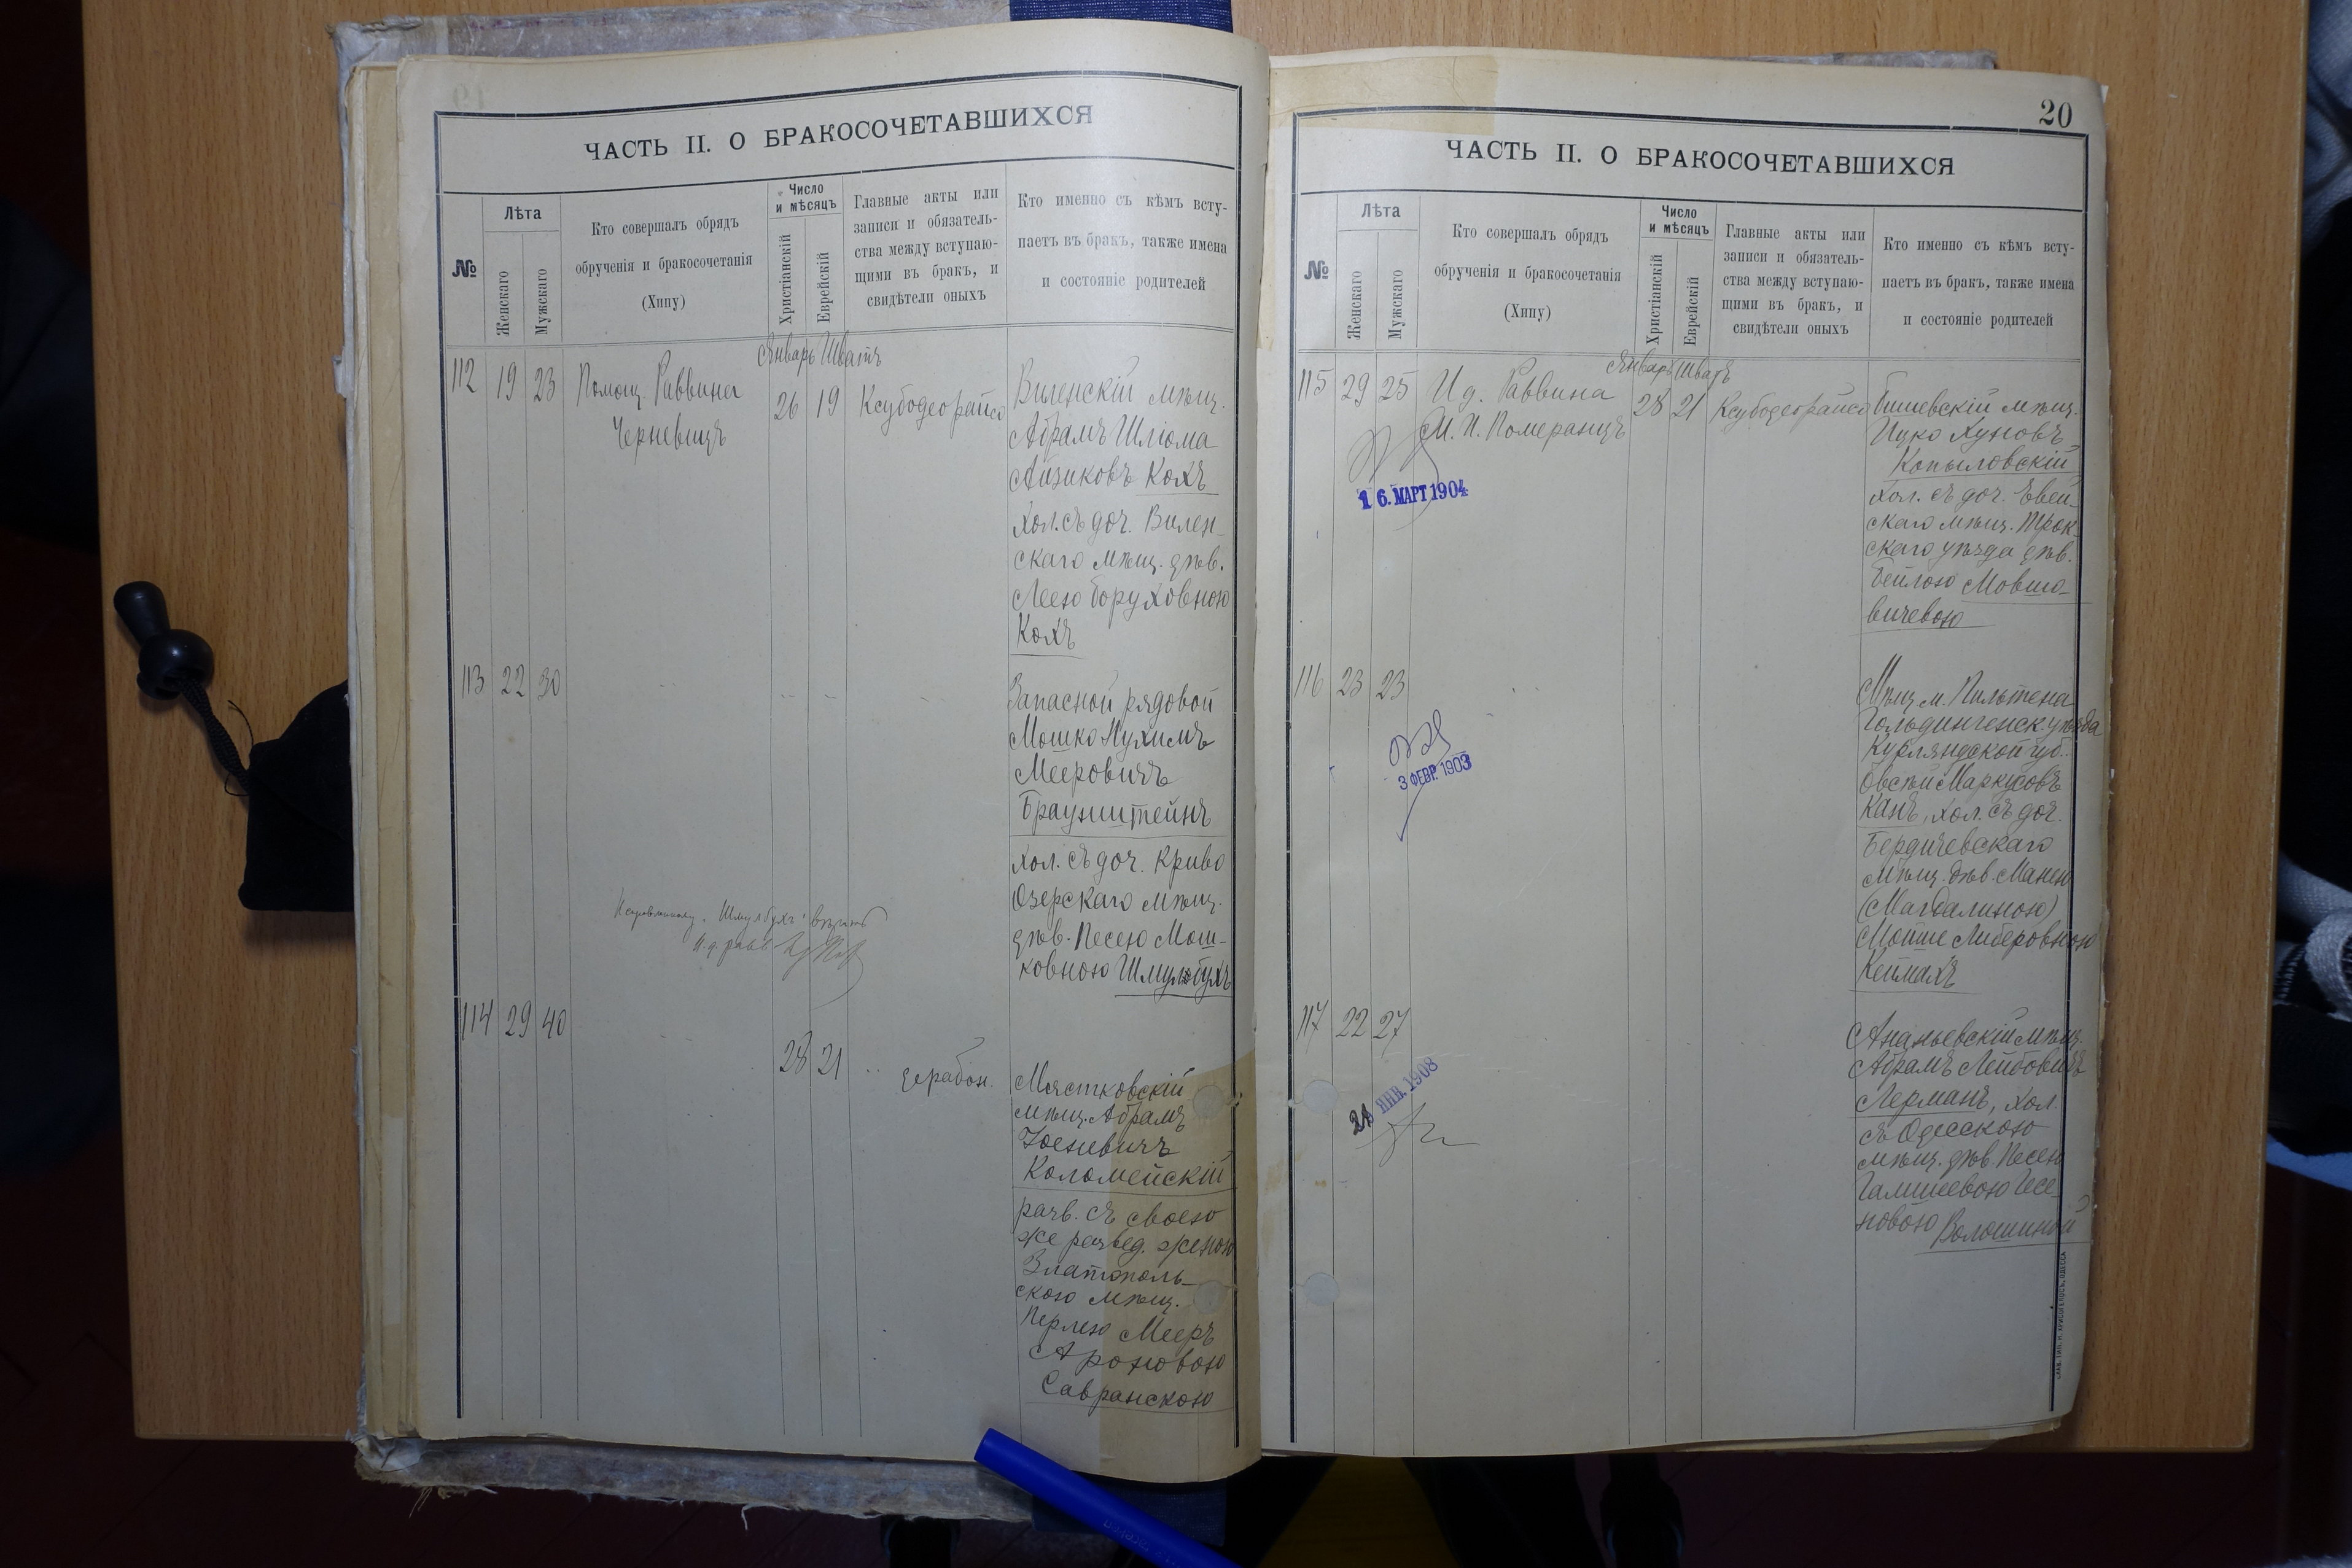 ЧАСТЬ II. О БРАКОСОЧЕТАВШИХСЯ
№
Лѣта
Женскаго
Мужскаго
Кто совершалъ обрядъ
обрученія и бракосочетанія
(Хипу)
Число
и мѣсяцъ
Христіанскій
Еврейскій
Главные акты или
записи и обязатель-
ства между вступаю-
щими въ бракъ, и
свидѣтели оныхъ
Кто именно съ кѣмъ всту-
паетъ въ бракъ, также имена
и состояніе родителей
Январь Шватъ
112 19 23 Помощ. Раввина
Черневицъ
26 19 Ксубодеорайсо
Виленскій мѣщ.
Абрамъ Шліома
Айзиковъ Кохъ
хол. съ доч. Вилен-
скаго мѣщ. дѣв.
Леею Боруховною
Кохъ
113 22 30
Запасной рядовой
Мошко Нухимъ
Мееровичъ
Браунштейнъ
хол. съ доч. Криво
Озерскаго мѣщ.
дѣв. Песею Мош-
ковною Шмулбухъ
Исправленному „Шмулбухъ" вѣрить
И. д. равв.
114 29 40
28 21 дерабон.
Мястковскій
мѣщ. Абрамъ
Коломейскій
разв. съ своею
же развед. женою
Златополь-
скою мѣщ.
Перлею Мееръ
Ароновою
Савранскою
20
ЧАСТЬ II. О БРАКОСОЧЕТАВШИХСЯ
№
Лѣта
Женскаго
Мужскаго
Кто совершалъ обрядъ
обрученія и бракосочетанія
(Хипу)
Число
и мѣсяцъ
Христіанскій
Еврейскій
Главные акты или
записи и обязатель-
ства между вступаю-
щими въ бракъ, и
свидѣтели оныхъ
Кто именно съ кѣмъ всту-
паетъ въ бракъ, также имена
и состояніе родителей
Январь Шватъ
115 29 25 И д. Раввина
М. И. Померанцъ
28 21 Ксубодеорайсо
16. МАРТ 1904
мѣщ.
Ицко Хуновъ
Копыловскій
хол. съ доч. Евей-
скаго мѣщ. Трок-
скаго уѣзда дѣв.
Бейлою Мовшо-
вичевою
116 23 23
3 ФЕВР. 1903
Мѣщ. м. Пильтена
Гольдингенск. уѣзда
Курляндской губ.
Овсѣй Маркусовъ
Канъ, хол. съ доч.
Бердичевскаго
мѣщ. дѣв. Манею
(Магдалиною)
Мойше Либеровною
Кеймахъ
117 22 27
21 ЯНВ. 1908
Ананьевскій мѣщ.
Абрамъ Лейбовичъ
Лерманъ, хол.
съ Одесскою
мѣщ. дѣв. Песею
Волошиной
ТИП. Н. ХРИСОГЕЛОСЪ, ОДЕССА